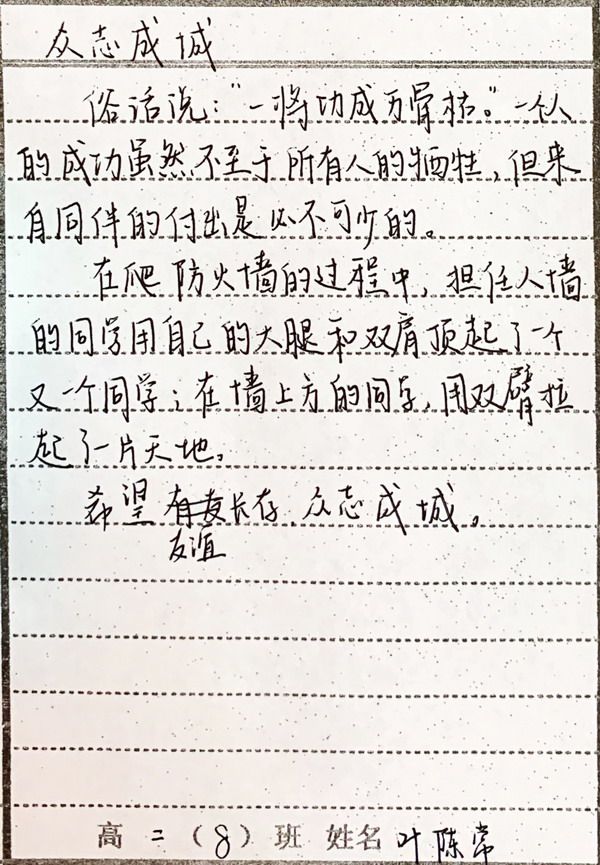 众志成城
俗话说：“一将功成万骨枯。”一个人
的成功虽然不至于所有人的牺牲，但来
自同伴的付出是必不可少的。
在爬防火墙的过程中，担任人墙
的同学用自己的大腿和双肩顶起了一个
又一个同学；在墙上方的同学，用双臂拉
起了一片天地。
希望友谊长存，众志成城。
高二（8）班 姓名 叶陈常